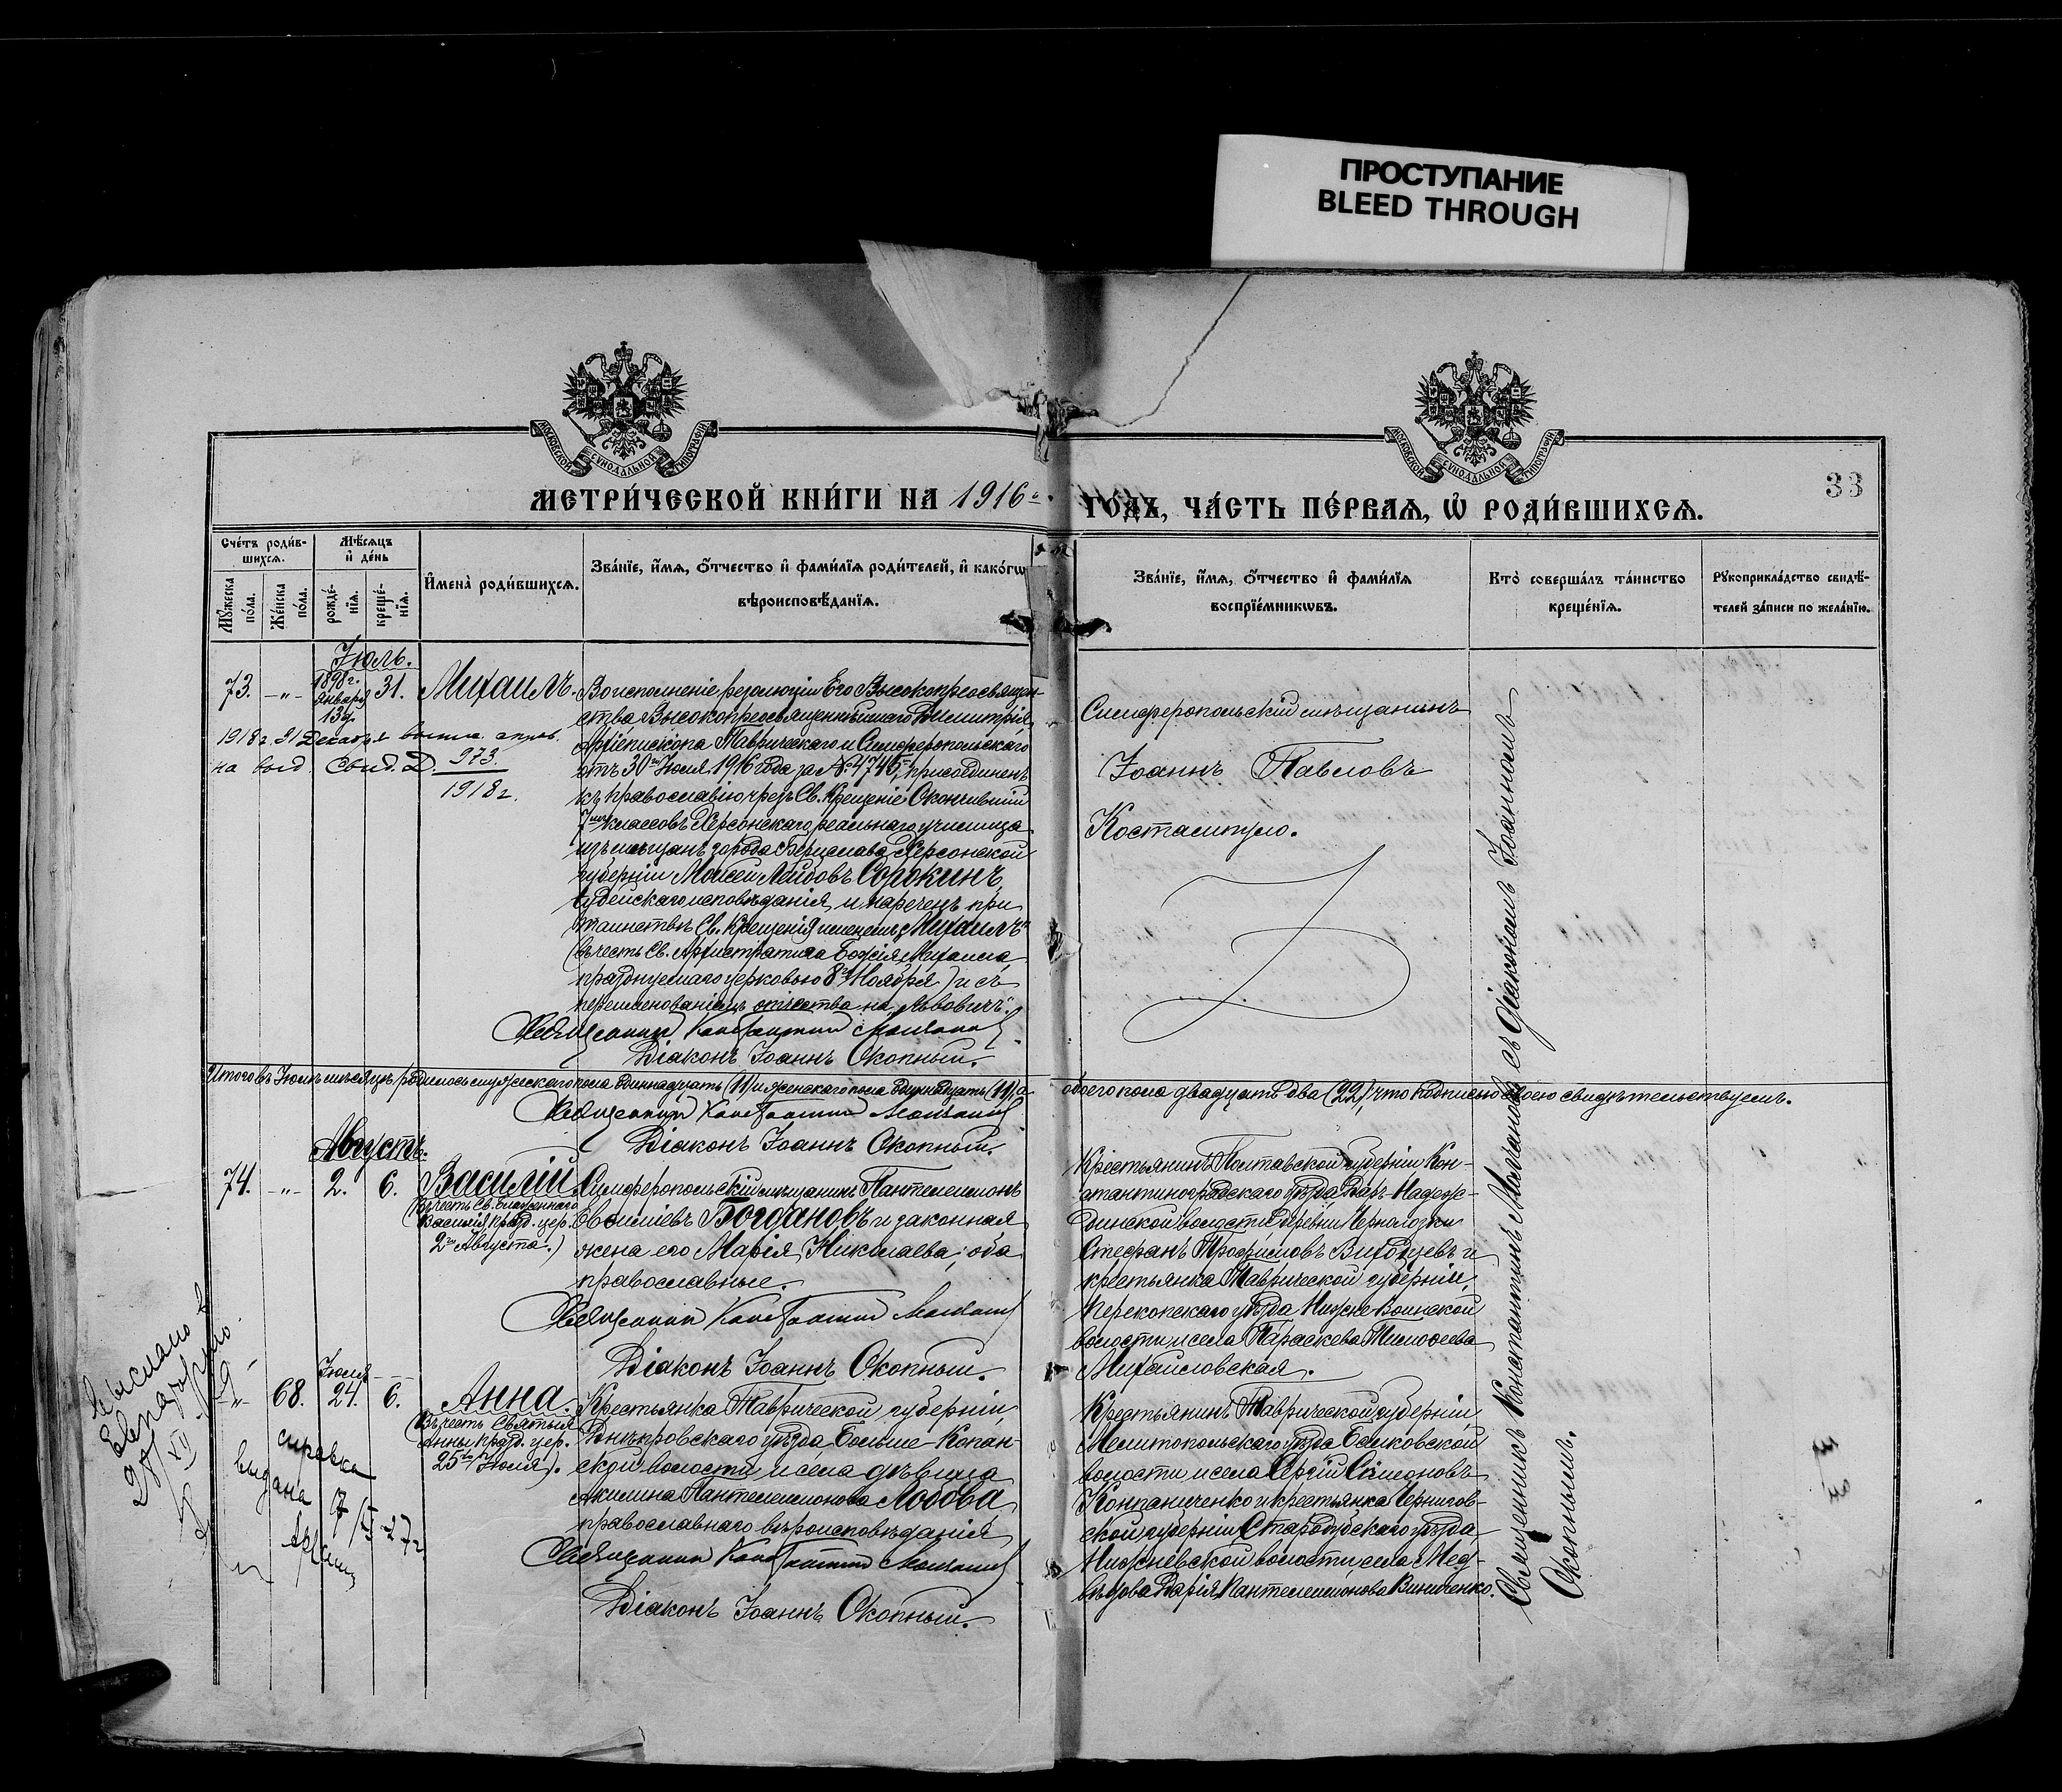 ПРОСТУПАНИЕ
BLEED THROUGH
МОСКОВСКОЙ СѴНОДАЛЬНОЙ ТИПОГРАФІИ
МОСКОВСКОЙ СѴНОДАЛЬНОЙ ТИПОГРАФІИ
33
МЕТРИ́ЧЕСКОЙ КНИ́ГИ НА 1916й ГО́ДЪ, ЧА́СТЬ ПЕ́РВАѦ, Ѡ РОДИ́ВШИХСѦ.
Сче́тъ роди́в-
шихсѧ.
Мꙋ́жеска по́ла.
Же́нска по́ла.
Мѣ́сѧцъ и҆ де́нь
рожде́-нїѧ.
креще́-нїѧ.
И҆мена̀ роди́вшихсѧ.
Зва́нїе, и҆́мѧ, ѻ҆́тчество и҆ фами́лїѧ роди́телей, и҆ како́гѡ
вѣроисповѣ́данїѧ.
Зва́нїе, и҆́мѧ, ѻ҆́тчество и҆ фами́лїѧ
воспрїе́мникѡвъ.
Кто̀ соверша́лъ та́инство
креще́нїѧ.
Рꙋкоприкла́дство свидѣ́-
телей за́писи по жела́нїю.
Іюль.
73. -„- 1898 г. Января 13 д. 31. Михаилъ.
Во исполненіе резолюціи Его Высокопреосвящен-
ства Высокопреосвященнѣйшаго Димитрія,
Архіепископа Таврическаго и Симферопольскаго
отъ 30го Іюля 1916 года за № 4746, присоединенъ
къ православію чрезъ Св. Крещеніе Окончившій
7мь классовъ Херсонскаго реальнаго училища
изъ мѣщанъ города Берислава, Херсонской
губерніи Моисей Лейбовъ Сорокинъ,
іудейскаго исповѣданія, и нареченъ при
таинствѣ Св. Крещенія именемъ „Михаилъ“
(въ честь Св. Архистратига Божія Михаила,
празднуемаго церковью 8го Ноября) и съ
переименованіемъ отчества на „Львовичъ“.
Священникъ Константинъ Молчановъ
Діаконъ Іоаннъ Окопный.
1918 г. 31 Декабря
на выд. Свид. 973.
1918 г.
Симферопольскій мѣщанинъ
Іоаннъ Павловъ
Итого въ Іюлѣ мѣсяцѣ родилось мужескаго пола одиннадцать (11) и женскаго пола одиннадцать (11), а
обоего пола двадцать два (22), что подписью своею свидѣтельствуемъ.
Священникъ Константинъ Молчановъ
Діаконъ Іоаннъ Окопный.
Августъ.
74. -„- 2. 6. Василій
(въ честь Св. блаженнаго
Василія, празд. цер.
2го Августа.)
Симферопольскій мѣщанинъ Пантелеимонъ
Василіевъ Богдановъ и законная
жена его Марія Николаева; оба
православные.
Священникъ Константинъ Молчановъ
Діаконъ Іоаннъ Окопный.
Крестьянинъ Полтавской губерніи Кон-
стантиноградскаго уѣзда, Дар-Надеж-
динской волости деревни
Стефанъ Трофимовъ и
крестьянка Таврической губерніи,
Перекопскаго уѣзда
волости и села Параскева Тимоѳеева
Михайловская.
-„- 68. Іюля 24. 6. Анна.
(въ честь Святыя
Анны празд. цер.
25го Іюля).
Крестьянка Таврической губерніи,
Днѣпровскаго уѣзда Больше-Копан-
ской волости и села дѣвица
Акилина Пантелеимонова Лобова,
православнаго вѣроисповѣданія
Священникъ Константинъ Молчановъ
Діаконъ Іоаннъ Окопный.
Крестьянинъ Таврической губерніи
Мелитопольскаго уѣзда Балковской
волости и села Сергій Симеоновъ
Компаниченко и крестьянка Чернигов-
ской губерніи Стародубскаго уѣзда
волости, села Мед-
вѣдова Марія Пантелеимонова Винниченко.
Священникъ Константинъ Молчановъ съ діакономъ Іоанномъ
Окопнымъ.
Выслано
Евпаторию
справка
выдана